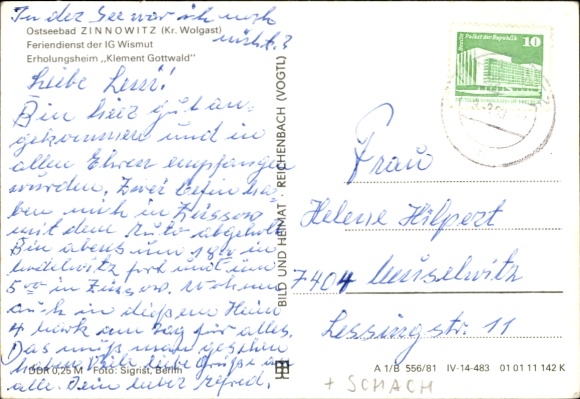 In der See war ich noch
nicht.?
Ostseebad ZINNOWITZ (Kr. Wolgast)
Feriendienst der IG Wismut
Erholungsheim „Klement Gottwald"
Liebe Leni!
Bin hier gut an-
gekommen und in
allen Ehren empfangen
wurden. Zwei
ben mich in Züssow
mit dem Auto abgeholt
Bin abens um in
fort und um
5 00 in Züssow. Wohne
auch in dießem Heim
4 Mark am Tag für alles.
Das muß man gesehn
haben. liebe Grüße an
alle. Dein lieber Alfred.
DDR 0,25 M Foto: Sigrist, Berlin
BILD UND HEIMAT · REICHENBACH (VOGTL)
Berlin Palast der Republik
10
Frau
Helene Hilpert
7404 Meuselwitz
Lessingstr. 11
A 1/B 556/81 IV-14-483 01 01 11 142 K
+ SCHACH